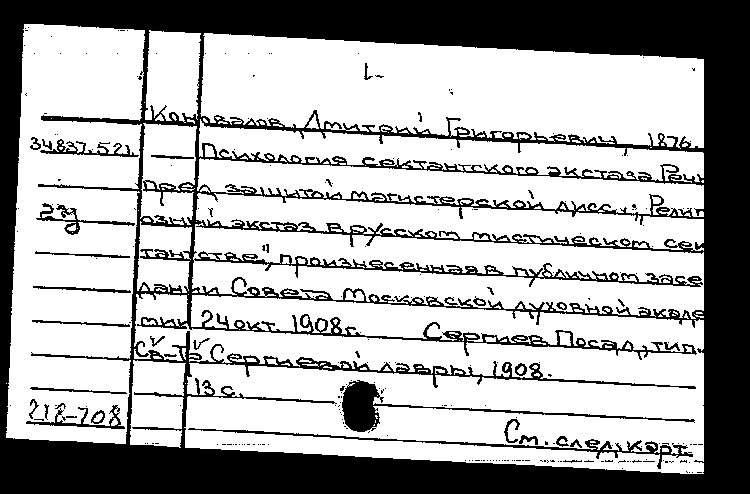 1-
Коновалов, Дмитрий Григорьевич, 1876.
34.837.521. Психология сектантского экстаза Речь
пред защитой магистерской дисс.: „Религ
озный экстаз в русском мистическом сек
тантстве", произнесенная в публичном засе
дании Совета Московской духовной акаде
мии 24 окт. 1908г. Сергиев Посад, тип.
Св-Тр Сергиевой лавры, 1908.
13 с.
218-708
См. след. карт.